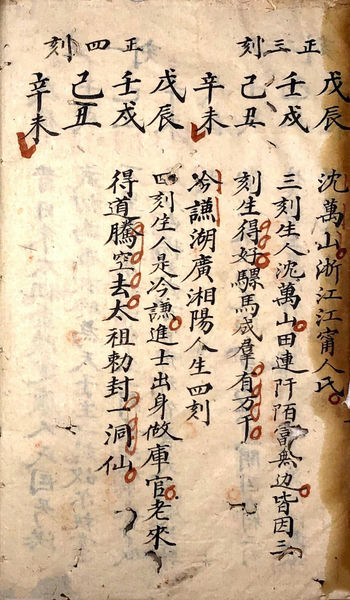 正三刻
戊辰
壬戌
己丑
辛未
沈萬山浙江江甯人氏
三刻生人沈萬山田連阡陌富無边皆因三
刻生得好騾馬成羣有万千
正四刻
戊辰
壬戌
己丑
辛未
冷謙湖廣湘陽人生四刻
四刻生人是冷謙進士出身做庫官老來
得道騰空去太祖勅封一洞仙